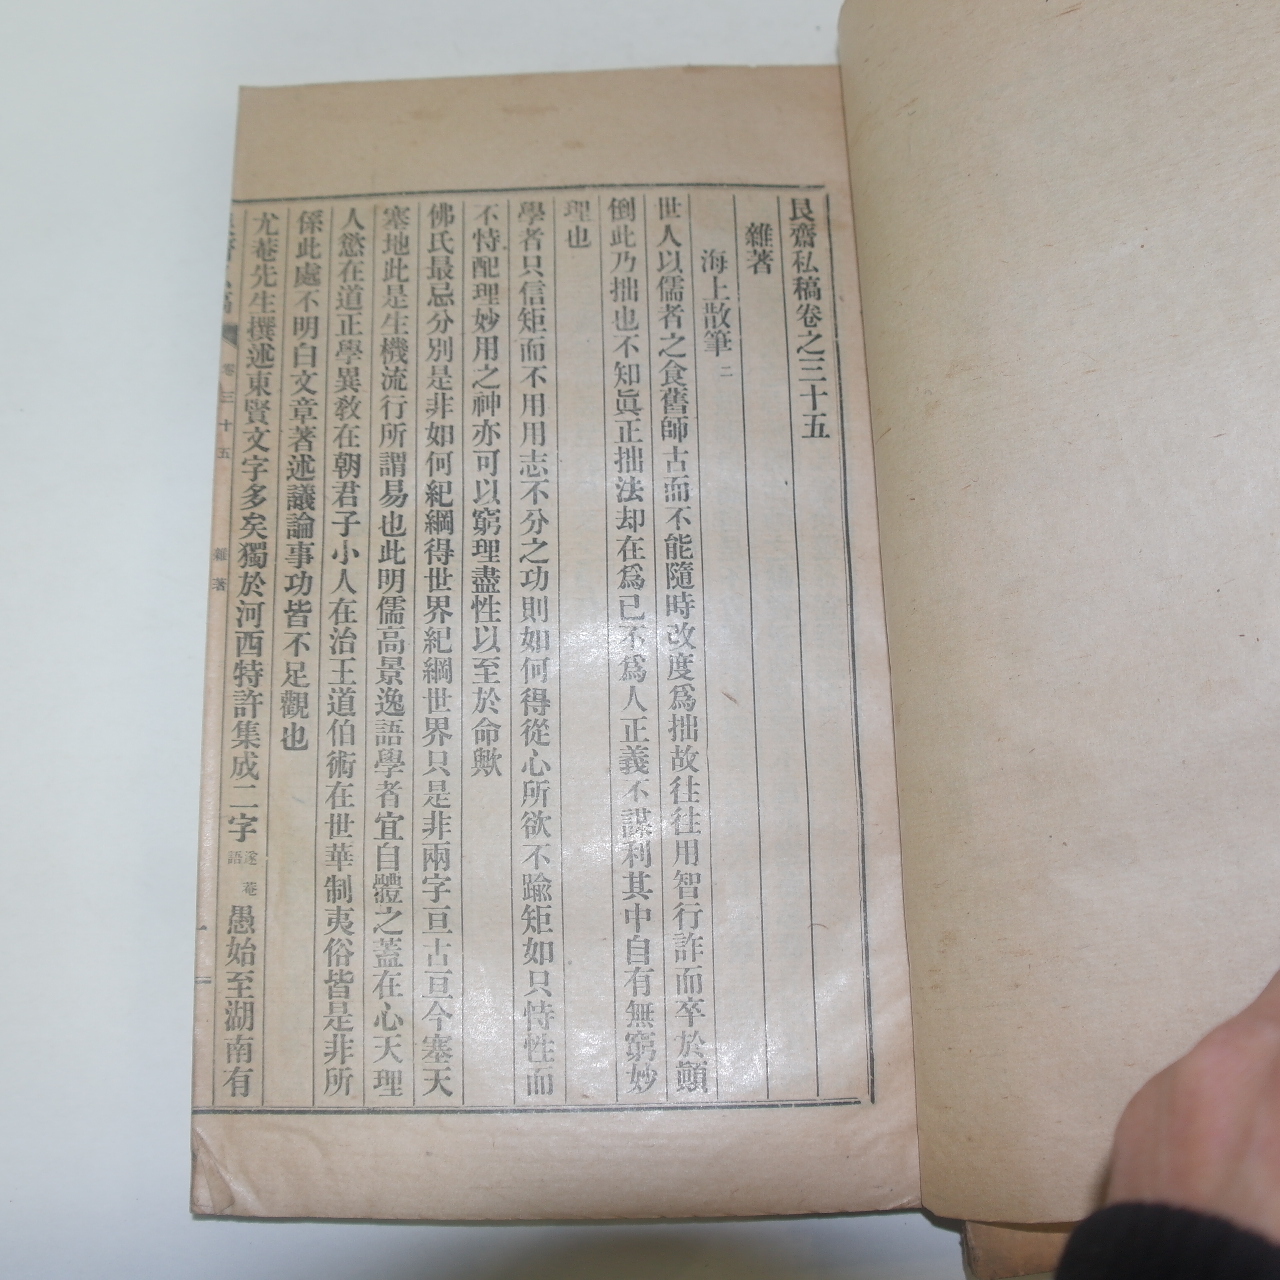 艮齋私稿卷之三十五
雜著
海上散筆 二
世人以儒者之食舊師古而不能隨時改度爲拙故往往用智行詐而卒於顚
倒此乃拙也不知眞正拙法却在爲已不爲人正義不謀利其中自有無窮妙
理也
學者只信矩而不用用志不分之功則如何得從心所欲不踰矩如只恃性而
不恃配理妙用之神亦可以窮理盡性以至於命歟
佛氏最忌分別是非如何紀綱得世界紀綱世界只是非兩字亘古亘今塞天
塞地此是生機流行所謂易也此明儒高景逸語學者宜自體之蓋在心天理
人慾在道正學異敎在朝君子小人在治王道伯術在世華制夷俗皆是非所
係此處不明白文章著述議論事功皆不足觀也
尤菴先生撰述東賢文字多矣獨於河西特許集成二字 遂菴語 愚始至湖南有
卷三十五 雜著 一